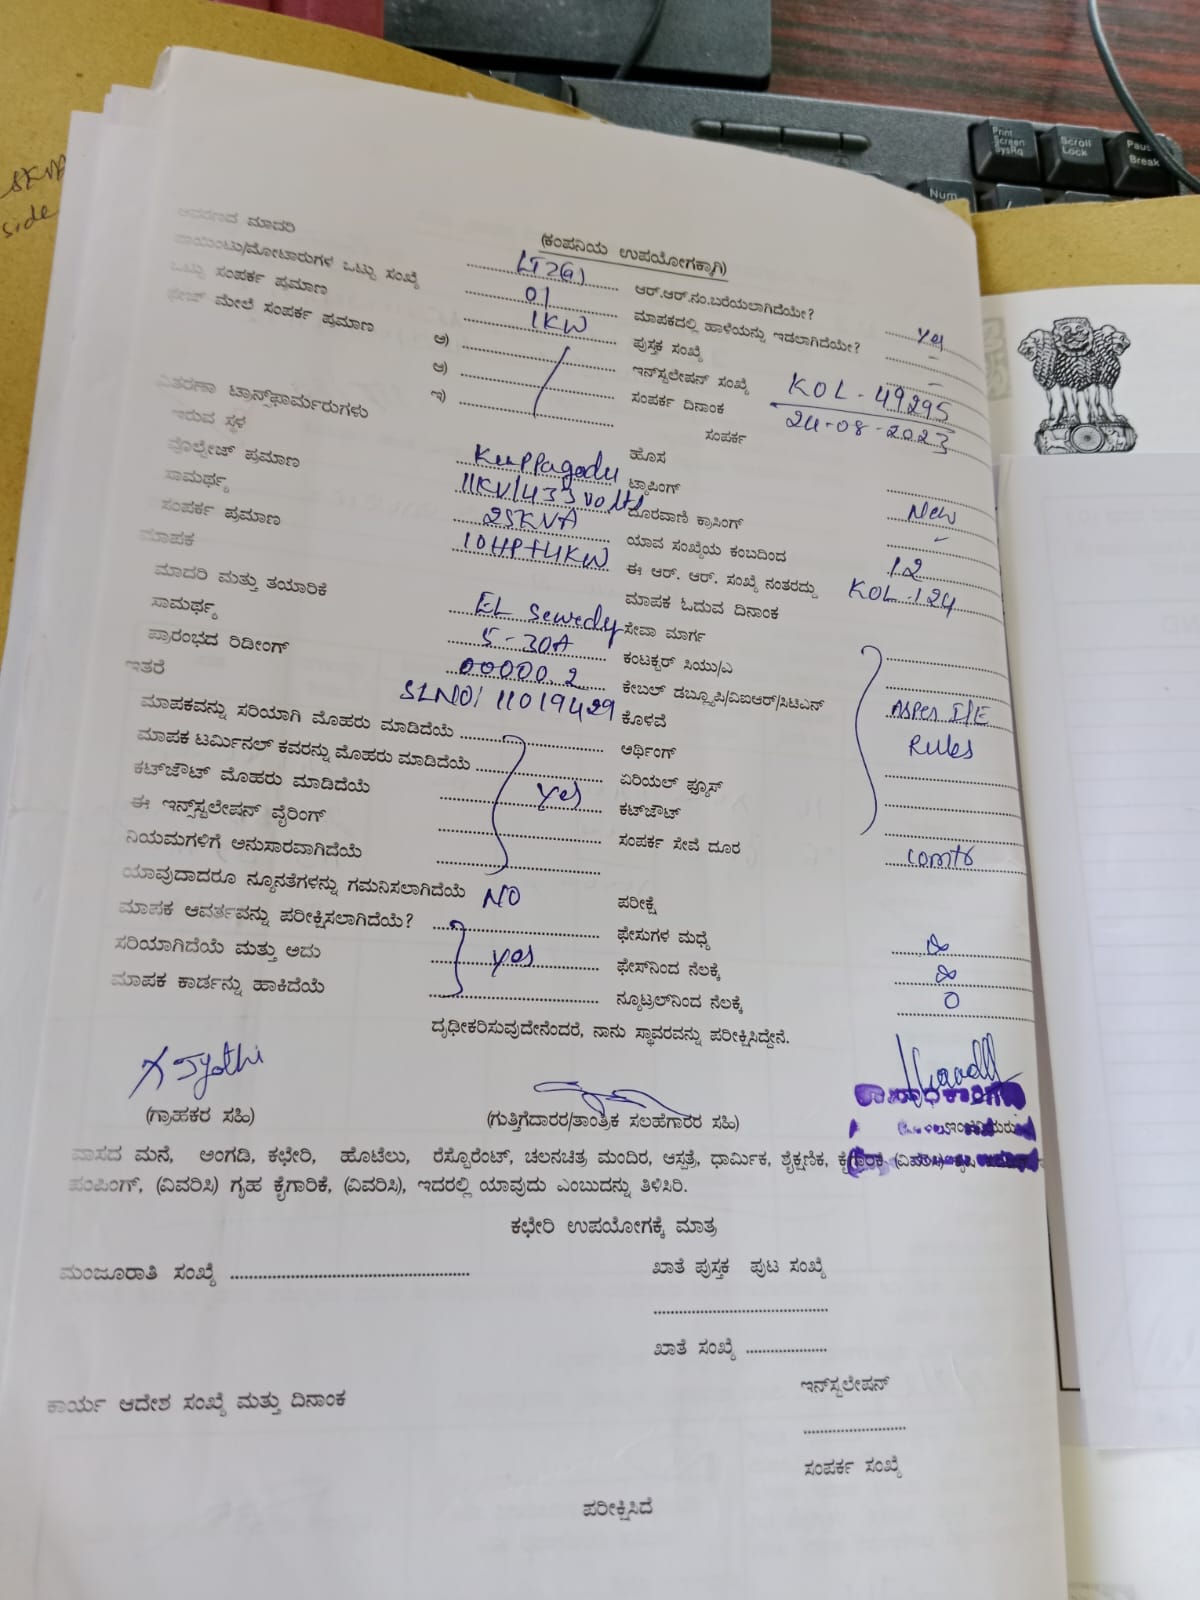 SKVA
side
Print Screen SysRq
Scroll Lock
Pause Break
Num
(ಕಂಪನಿಯ ಉಪಯೋಗಕ್ಕಾಗಿ)
ಮಾದರಿ LT2(a) ಆರ್.ಆರ್.ನಂ.ಬರೆಯಲಾಗಿದೆಯೇ? Yes
ಪಾಯಿಂಟು/ಮೋಟಾರುಗಳ ಒಟ್ಟು ಸಂಖ್ಯೆ 01 ಮಾಪಕದಲ್ಲಿ ಹಾಳೆಯನ್ನು ಇಡಲಾಗಿದೆಯೇ? -
ಒಟ್ಟು ಸಂಪರ್ಕ ಪ್ರಮಾಣ 1KW ಪುಸ್ತಕ ಸಂಖ್ಯೆ -
ಫೇಜ್ ಮೇಲೆ ಸಂಪರ್ಕ ಪ್ರಮಾಣ ಅ) ಇನ್‌ಸ್ಟಲೇಷನ್ ಸಂಖ್ಯೆ KOL-49295
ಆ) ಸಂಪರ್ಕ ದಿನಾಂಕ 24-08-2023
ಇ) ಸಂಪರ್ಕ
ವಿತರಣಾ ಟ್ರಾನ್ಸ್‌ಫಾರ್ಮರುಗಳು ಹೊಸ
ಇರುವ ಸ್ಥಳ Kuppagadu ಟ್ಯಾಪಿಂಗ್ New
ವೊಲ್ಟೇಜ್ ಪ್ರಮಾಣ 11KV/433 volts ದೂರವಾಣಿ ಕ್ರಾಸಿಂಗ್ -
ಸಾಮರ್ಥ್ಯ 25KVA ಯಾವ ಸಂಖ್ಯೆಯ ಕಂಬದಿಂದ 12
ಸಂಪರ್ಕ ಪ್ರಮಾಣ 10HP+4KW ಈ ಆರ್. ಆರ್. ಸಂಖ್ಯೆ ನಂತರದ್ದು KOL-124
ಮಾಪಕ ಮಾಪಕ ಓದುವ ದಿನಾಂಕ
ಮಾದರಿ ಮತ್ತು ತಯಾರಿಕೆ EL Sewedy ಸೇವಾ ಮಾರ್ಗ
ಸಾಮರ್ಥ್ಯ 5-30A ಕಂಟಕ್ಟರ್ ಸಿಯು/ಎ
ಪ್ರಾರಂಭದ ರಿಡೀಂಗ್ 00000.2 ಕೇಬಲ್ ಡಬ್ಲ್ಯೂಪಿ/ವಿಐಆರ್/ಸಿಟಿಎನ್ Asper I/E
ಇತರೆ SLNO/11019429 ಕೊಳವೆ Rules
ಮಾಪಕವನ್ನು ಸರಿಯಾಗಿ ಮೊಹರು ಮಾಡಿದೆಯೆ ಆರ್ಥಿಂಗ್
ಮಾಪಕ ಟರ್ಮಿನಲ್ ಕವರನ್ನು ಮೊಹರು ಮಾಡಿದೆಯೆ ಏರಿಯಲ್ ಫ್ಯೂಸ್
ಕಟ್‌ಜೌಟ್ ಮೊಹರು ಮಾಡಿದೆಯೆ Yes ಕಟ್‌ಜೌಟ್
ಈ ಇನ್ಸ್‌ಸ್ಟಲೇಷನ್ ವೈರಿಂಗ್ ಸಂಪರ್ಕ ಸೇವೆ ದೂರ
ನಿಯಮಗಳಿಗೆ ಅನುಸಾರವಾಗಿದೆಯೆ
ಯಾವುದಾದರೂ ನ್ಯೂನತೆಗಳನ್ನು ಗಮನಿಸಲಾಗಿದೆಯೆ NO ಪರೀಕ್ಷೆ
ಮಾಪಕ ಆವರ್ತವನ್ನು ಪರೀಕ್ಷಿಸಲಾಗಿದೆಯೆ? ಫೇಸುಗಳ ಮಧ್ಯೆ ∞
ಸರಿಯಾಗಿದೆಯೆ ಮತ್ತು ಅದು yes ಫೇಸ್‌ನಿಂದ ನೆಲಕ್ಕೆ ∞
ಮಾಪಕ ಕಾರ್ಡನ್ನು ಹಾಕಿದೆಯೆ ನ್ಯೂಟ್ರಲ್‌ನಿಂದ ನೆಲಕ್ಕೆ 0
ದೃಢೀಕರಿಸುವುದೇನೆಂದರೆ, ನಾನು ಸ್ಥಾವರವನ್ನು ಪರೀಕ್ಷಿಸಿದ್ದೇನೆ.
x Jyothi
(ಗ್ರಾಹಕರ ಸಹಿ) (ಗುತ್ತಿಗೆದಾರರ/ತಾಂತ್ರಿಕ ಸಲಹೆಗಾರರ ಸಹಿ)
ವಾಸದ ಮನೆ, ಅಂಗಡಿ, ಕಛೇರಿ, ಹೊಟೆಲು, ರೆಸ್ಟೊರೆಂಟ್, ಚಲನಚಿತ್ರ ಮಂದಿರ, ಆಸ್ಪತ್ರೆ, ಧಾರ್ಮಿಕ, ಶೈಕ್ಷಣಿಕ, ಕೈಗಾರಿಕೆ (ವಿವರಿಸಿ)
ಪಂಪಿಂಗ್, (ವಿವರಿಸಿ) ಗೃಹ ಕೈಗಾರಿಕೆ, (ವಿವರಿಸಿ), ಇದರಲ್ಲಿ ಯಾವುದು ಎಂಬುದನ್ನು ತಿಳಿಸಿರಿ.
ಕಛೇರಿ ಉಪಯೋಗಕ್ಕೆ ಮಾತ್ರ
ಮಂಜೂರಾತಿ ಸಂಖ್ಯೆ ಖಾತೆ ಪುಸ್ತಕ ಪುಟ ಸಂಖ್ಯೆ
ಖಾತೆ ಸಂಖ್ಯೆ
ಕಾರ್ಯ ಆದೇಶ ಸಂಖ್ಯೆ ಮತ್ತು ದಿನಾಂಕ ಇನ್‌ಸ್ಟಲೇಷನ್
ಸಂಪರ್ಕ ಸಂಖ್ಯೆ
ಪರೀಕ್ಷಿಸಿದೆ